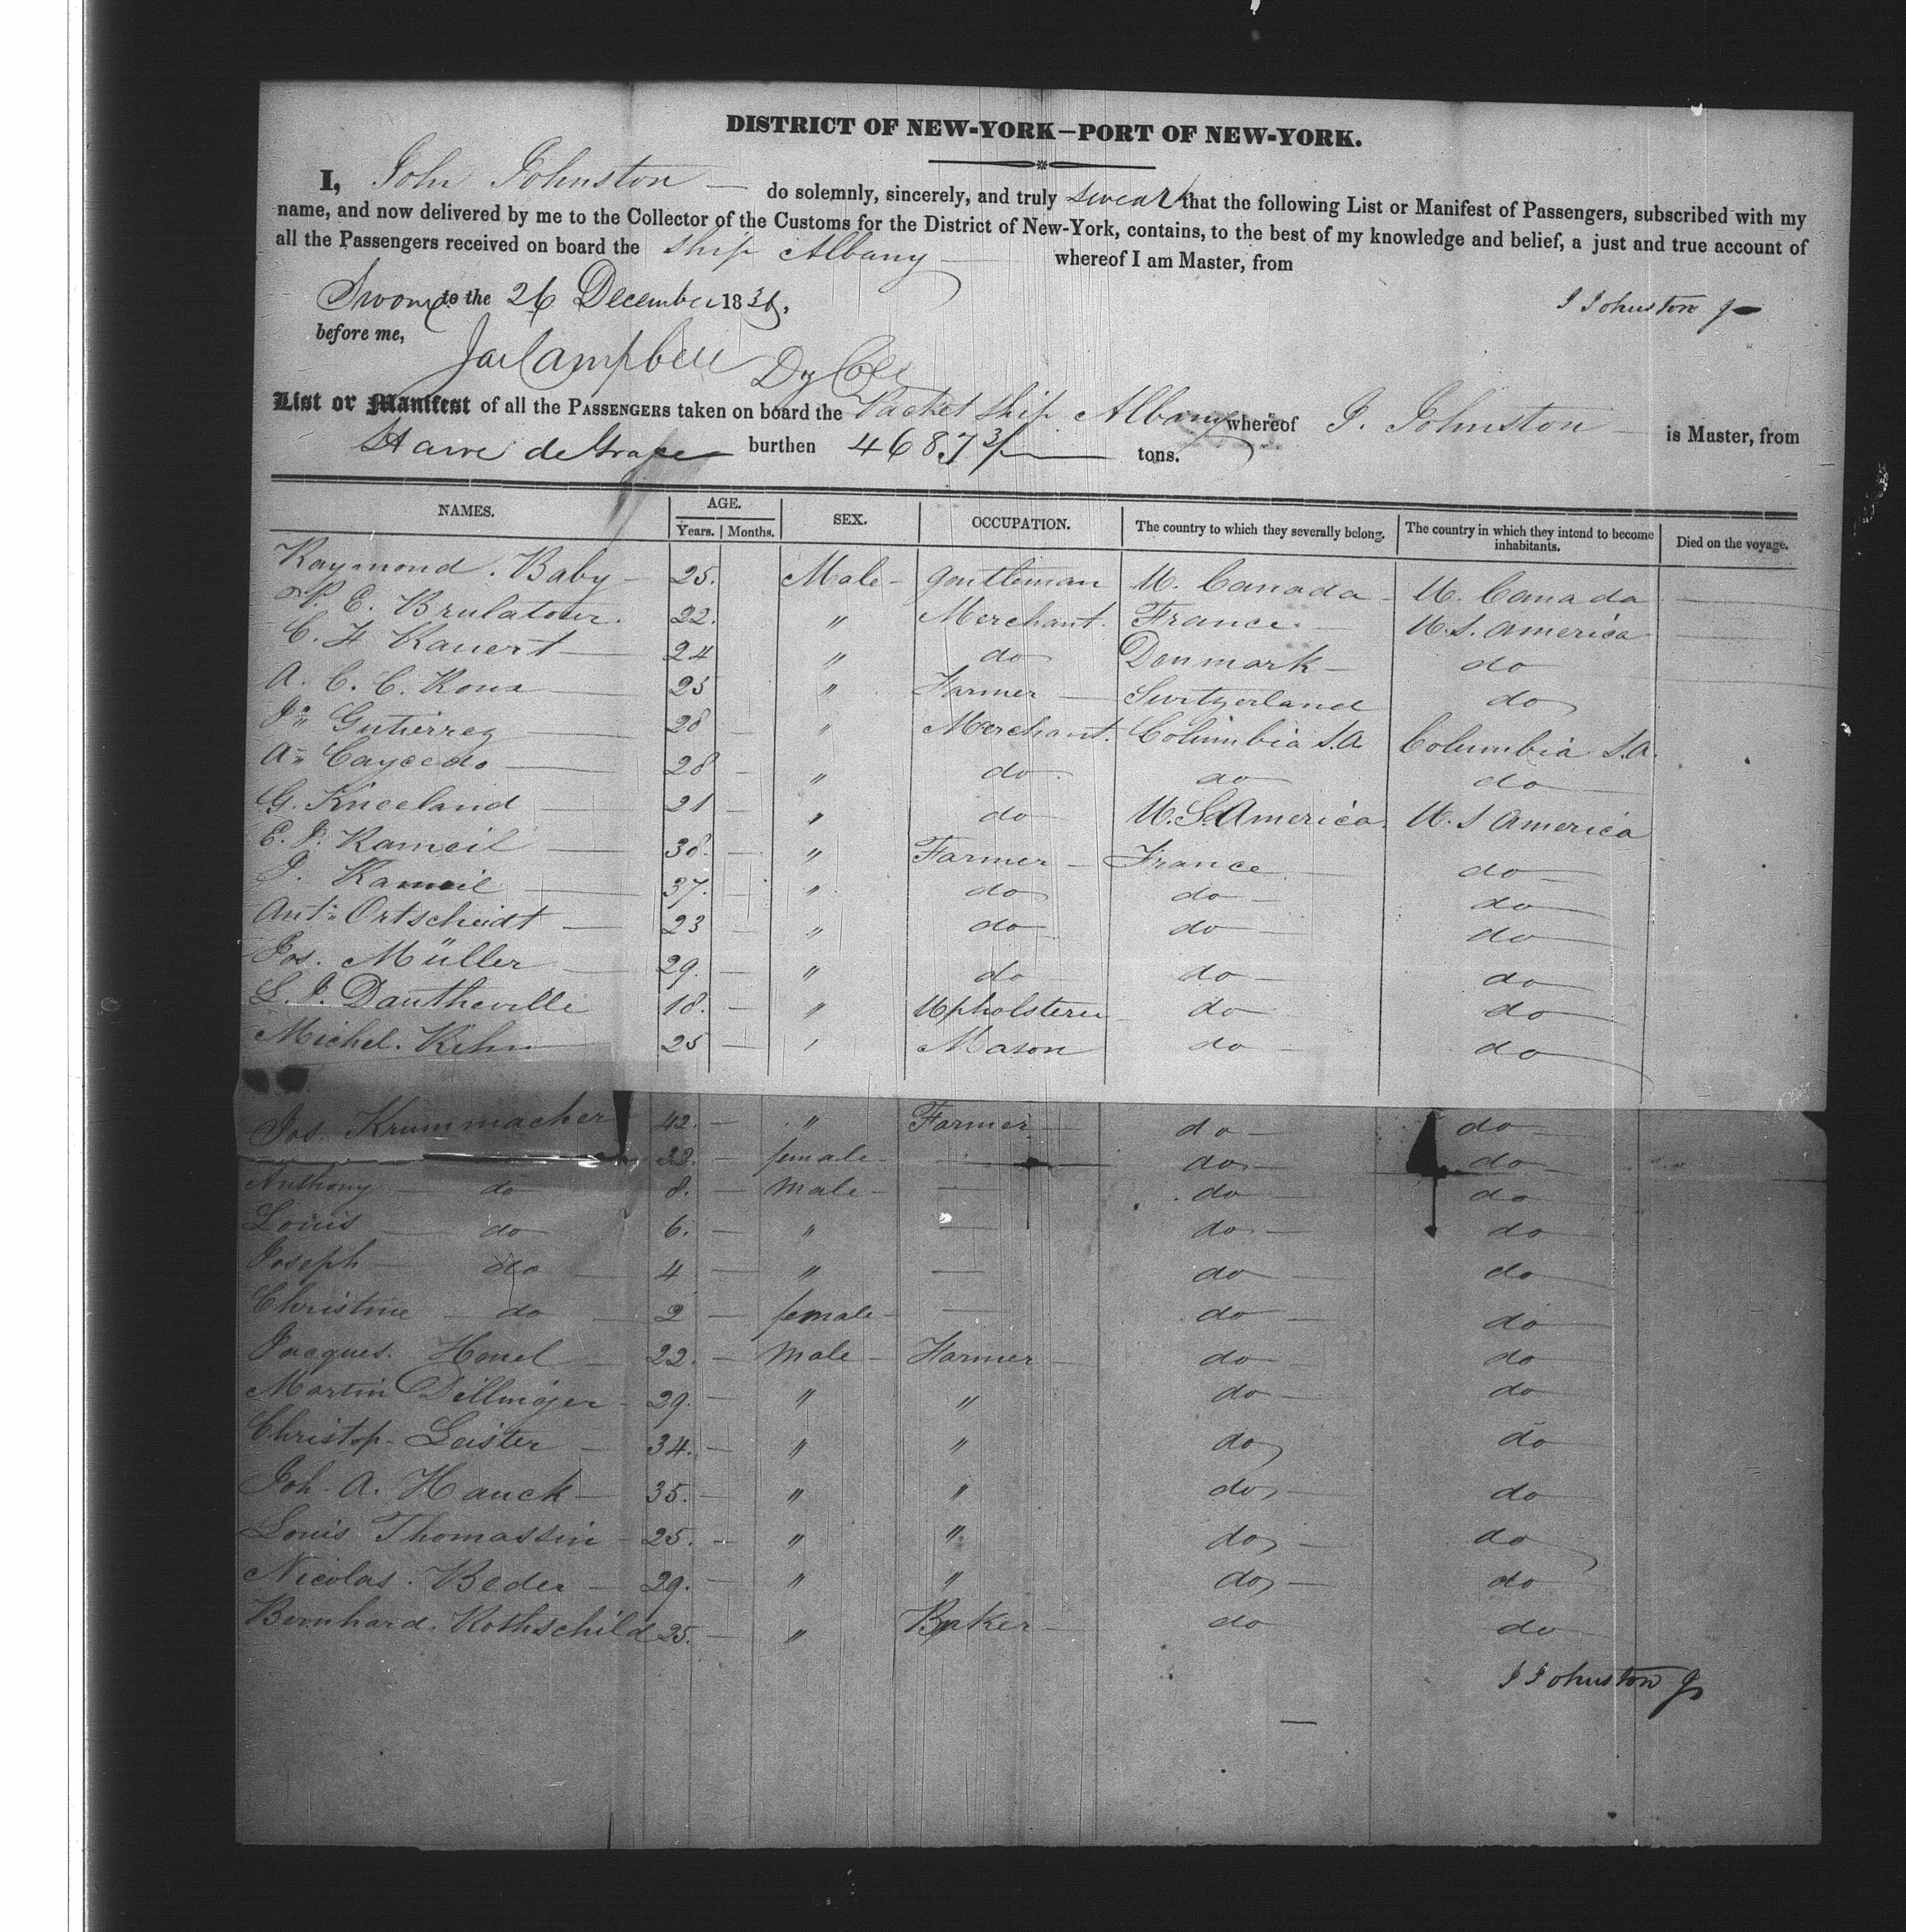 DISTRICT OF NEW-YORK—PORT OF NEW-YORK.
I, John Johnston — do solemnly, sincerely, and truly swear that the following List or Manifest of Passengers, subscribed with my
name, and now delivered by me to the Collector of the Customs for the District of New-York, contains, to the best of my knowledge and belief, a just and true account of
all the Passengers received on board the Ship Albany — whereof I am Master, from
Sworn to the 26 December 183
J Johnston Jr
before me,
Jas Campbell Dy Coll
List or Manifest of all the PASSENGERS taken on board the Packet Ship Albany whereof J. Johnston — is Master, from
Havre de Grace burthen 468 tons.
NAMES. AGE. Years. Months. SEX. OCCUPATION. The country to which they severally belong. The country in which they intend to become inhabitants. Died on the voyage.
Raymond. Baby — 25. Male — Gentleman U. Canada — U. Canada —
P. E. Brulatour. 22. " Merchant. France. — U.S. America —
C. H Kauert — 24 " do Denmark — do
A. C. C. Roux — 25 " Farmer — Switzerland do
Gutierrez — 28 " Merchant. Columbia S.A. Columbia S.A.
Caycedo — 28 — " do do do —
G. Kneeland — 21 — " do U.S. America. U.S America
E. J. Rameil — 38. — " Farmer — France — do —
J. Rameil — 37. — " do do — do —
Ant: Ortscheidt — 23 — " do — do — do —
Jos. Müller — 29. — " do do — do —
L. J. Dautheville 18. — " Upholsterer do do —
Michel. Kihn — 25 — " Mason do — do —
Jos Krummacher 42. — " Farmer — do — do —
32. — female — — do — do —
Anthony — do 8. — Male — — do — do
Louis — do 6. — " — do — do
Joseph — do — 4 — " — do — do
Christine — do — 2 — female — — do — do
Jacques. Honel — 22. — Male — Farmer — do — do
Martin Dillinger — 29. — " " do — do
Christop. Leister — 34. — " " do do
Joh. A. Hauck — 35. — " " do — do
Louis Thomassin — 25. — " " do — do
Nicolas. Beder — 29. — " " do — do
Bernhard. Rothschild 25. — " Baker — do do
J Johnston Jr